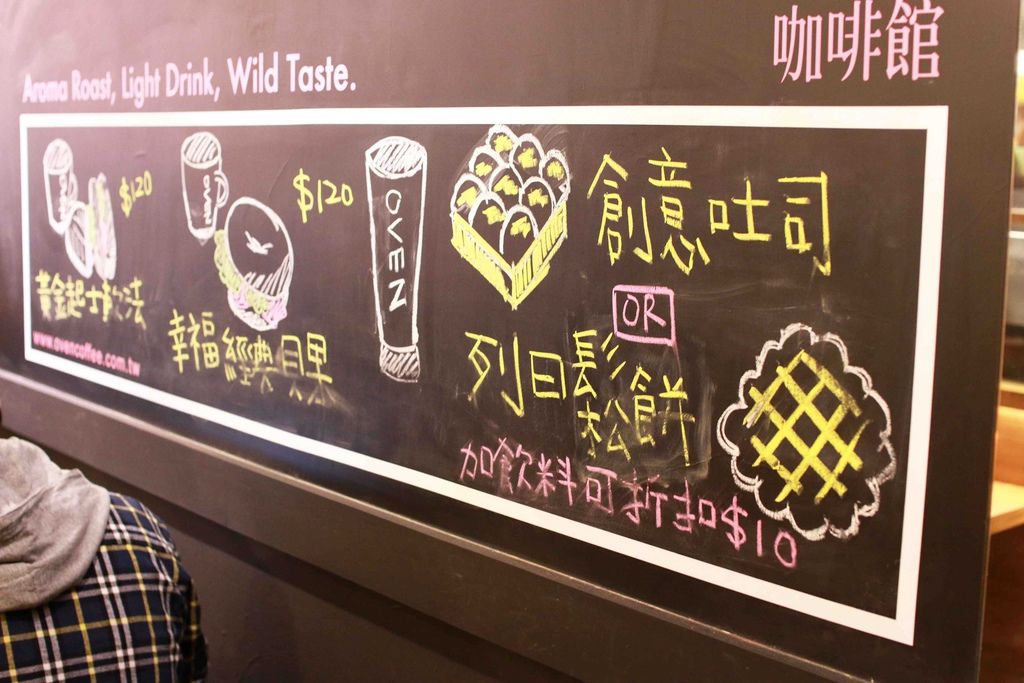 咖啡館
Aroma Roast, Light Drink, Wild Taste.
$120
黃金起士軟法
OVEN
$120
幸福經典貝果
OVEN
創意吐司
OR
列日鬆餅
加飲料可折扣$10
www.ovencoffee.com.tw